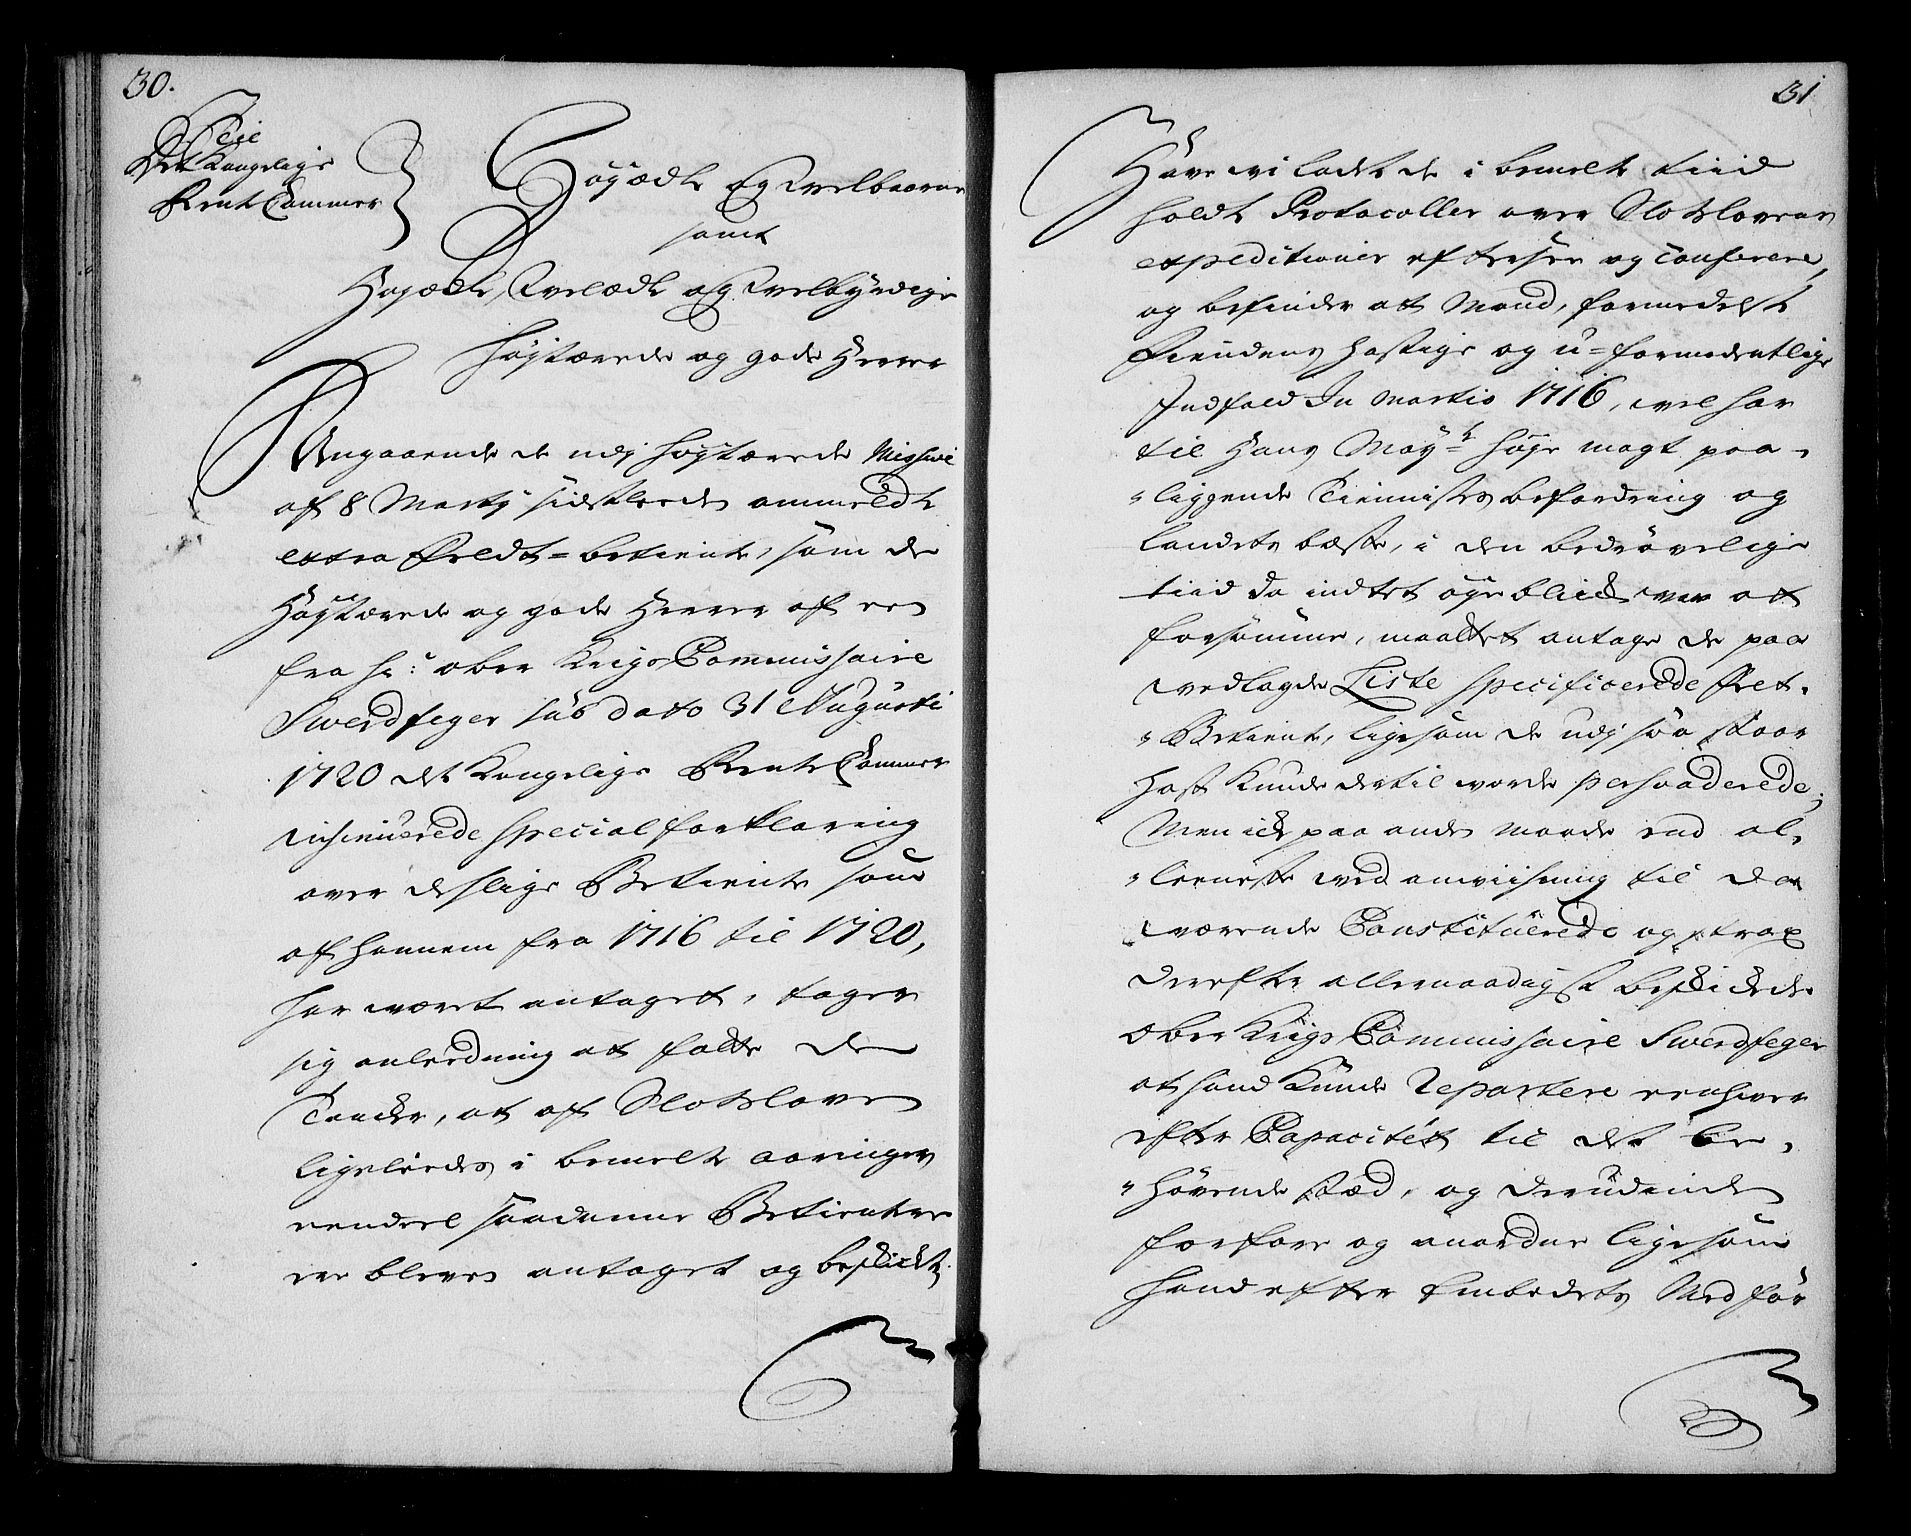 30.
Til
Det Kongelige
Rente Cammer
Høyædle og Velbaarne
samt
Høyædle, Velædle og Velbyrdige
høystærede og gode Herrer
Angaaende de udj høystærede Missive
af 8 Martij sidstleeden ommeldte
extra Feldt=betiente, som de
Høystærede og gode Herrer af een
fra hr: ober Krigs Commissaire
Swerdfeger sub dato 31 Augusti
1720 det Kongelige Rente Cammer
insinuerede special forklaring
over deslige Betiente som
af hannem fra 1716 til 1720,
har været antaget, tager
sig anledning at fatte de
Tancker, at af Slotsloven
ligeleedes i bemelte aaringer
eendeel saadanne Betientere
ere bleven antaget og beskicket,
31
Have vi ladet de i bemelte tiid
holdte Protocoller over Slotslovens
expeditioner eftersee og conferere,
og befinder at Mand, formedelst
Fiendens hastige og u=formodentlige
Indfald In Martio 1716, vel har
til Hans Mayts høye magt paa-
liggende Tienistes befordring og
landets beste, i den bedrøvelige
tiid da indtet øyeblick var at
forsømme, maattet antage de paa
vedlagde Liste specificerede Felt-
Betiente, ligesom de udj saa stoor
Hast kunde dertil vorde persvaderede;
Men icke paa anden maade end al-
leeneste ved anviisning til da
værende Constituerede og strax
derefter allernaadigst beskickede
Ober Krigs Commissaire Swerdfeger
at hand kunde repartere eenhver
efter Capacitet til det be-
høvende stæd, og derudinden
forfare og anordne ligesom
hand efter Embedets Medfør